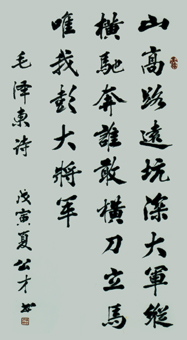 山高路遠坑深大軍縱
橫馳奔誰敢橫刀立馬
唯我彭大將軍
毛澤東詩 戊寅夏公才书